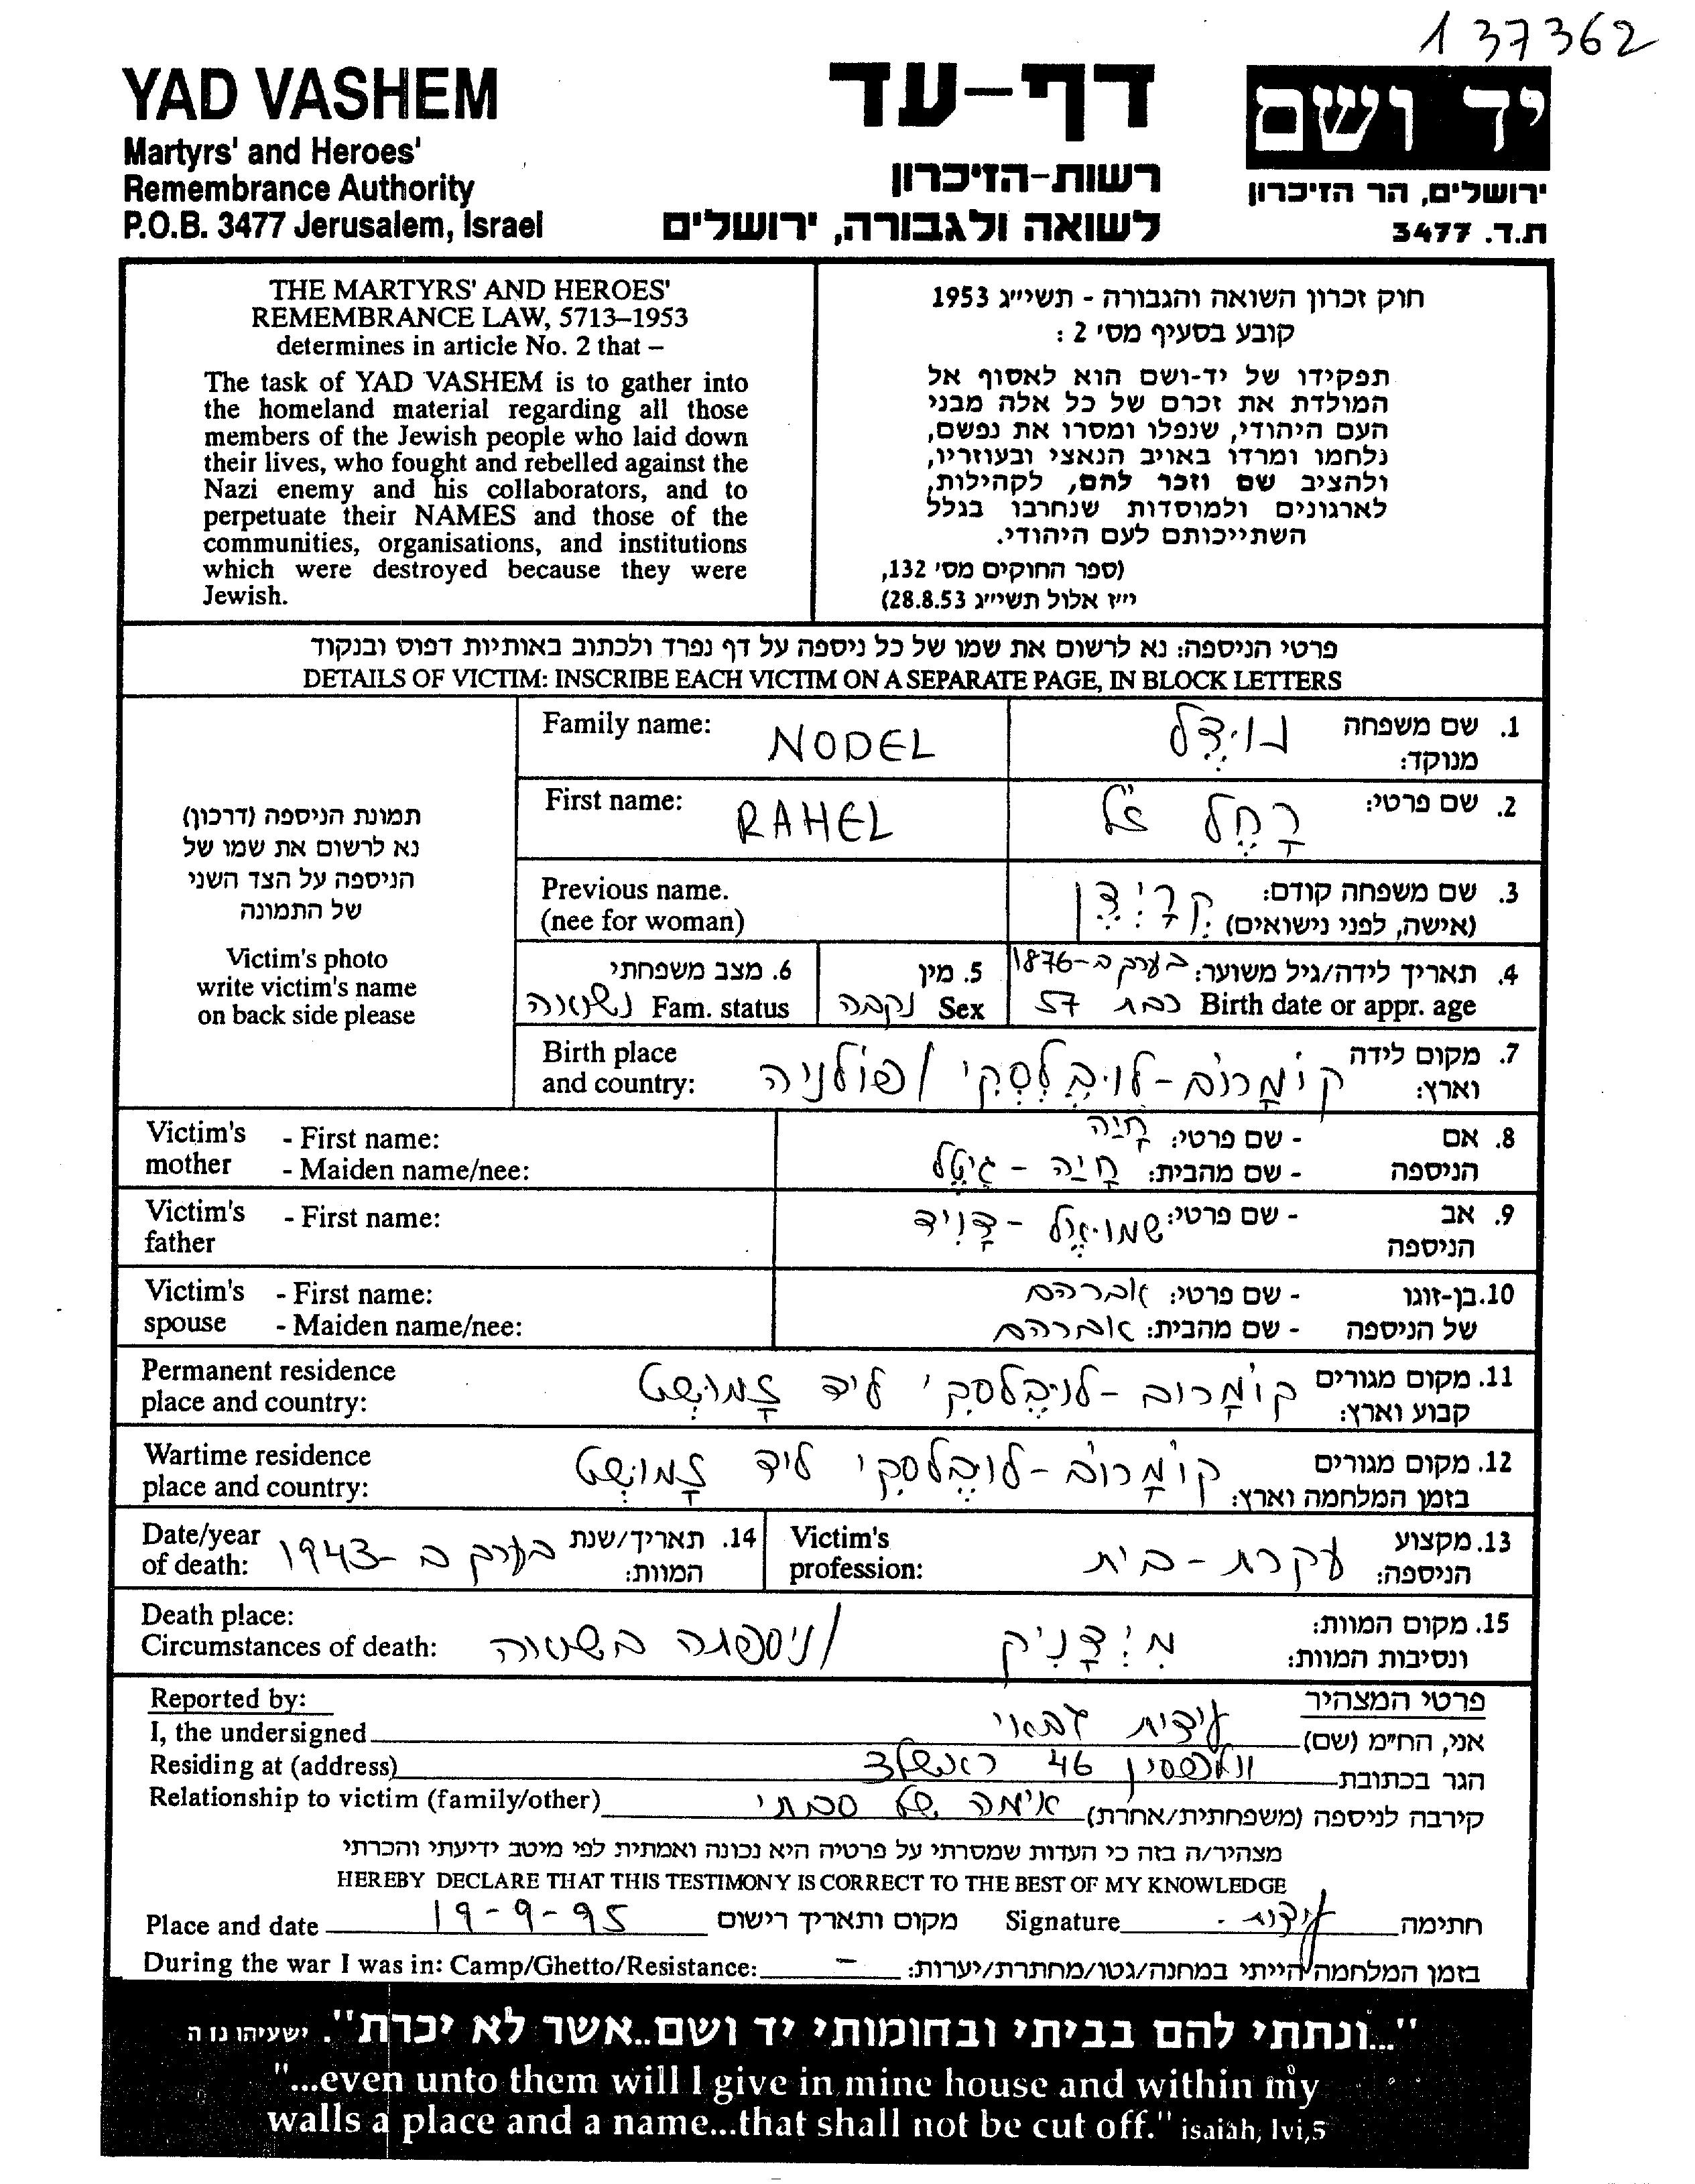 137362
YAD VASHEM
Martyrs' and Heroes'
Remembrance Authority
P.O.B. 3477 Jerusalem, Israel
דף-עד
רשות-הזיכרון
לשואה ולגבורה, ירושלים
יד ושם
ירושלים, הר הזיכרון
ת.ד. 3477
THE MARTYRS' AND HEROES'
REMEMBRANCE LAW, 5713–1953
determines in article No. 2 that –
The task of YAD VASHEM is to gather into
the homeland material regarding all those
members of the Jewish people who laid down
their lives, who fought and rebelled against the
Nazi enemy and his collaborators, and to
perpetuate their NAMES and those of the
communities, organisations, and institutions
which were destroyed because they were
Jewish.
חוק זכרון השואה והגבורה - תשי״ג 1953
קובע בסעיף מס׳ 2 :
תפקידו של יד-ושם הוא לאסוף אל
המולדת את זכרם של כל אלה מבני
העם היהודי, שנפלו ומסרו את נפשם,
נלחמו ומרדו באויב הנאצי ובעוזריו,
ולהציב שם וזכר להם, לקהילות,
לארגונים ולמוסדות שנחרבו בגלל
השתייכותם לעם היהודי.
(ספר החוקים מס׳ 132,
י״ז אלול תשי״ג 28.8.53)
פרטי הניספה: נא לרשום את שמו של כל ניספה על דף נפרד ולכתוב באותיות דפוס ובנקוד
DETAILS OF VICTIM: INSCRIBE EACH VICTIM ON A SEPARATE PAGE, IN BLOCK LETTERS
תמונת הניספה (דרכון)
נא לרשום את שמו של
הניספה על הצד השני
של התמונה
Victim's photo
write victim's name
on back side please
Family name: NODEL
1. שם משפחה מנוקד: נוידֶל
First name: RAHEL
2. שם פרטי: רָחֵל ז״ל
Previous name.
(nee for woman)
3. שם משפחה קודם:
(אישה, לפני נישואים)
4. תאריך לידה/גיל משוער: בערך ב-1876
Birth date or appr. age כבת 57
5. מין Sex נקבה
6. מצב משפחתי Fam. status נשואה
Birth place
and country:
7. מקום לידה וארץ: קוֹמָרוֹב-לוּבֶּלְסְקִי / פולניה
Victim's mother - First name:
- Maiden name/nee:
8. אם הניספה - שם פרטי: חַיָה
- שם מהבית: חַיָה - גיטל
Victim's father - First name:
9. אב הניספה - שם פרטי: שמואל - דָוִיד
Victim's spouse - First name:
- Maiden name/nee:
10. בן-זוגו של הניספה - שם פרטי: אברהם
- שם מהבית: אברהם
Permanent residence
place and country:
11. מקום מגורים קבוע וארץ: קוֹמָרוב-לוּבֶּלסקִי ליד זָמוּשְט
Wartime residence
place and country:
12. מקום מגורים בזמן המלחמה וארץ: קוֹמָרוֹב-לוּבֶּלסקִי ליד זָמוּשְט
Date/year
of death:
14. תאריך/שנת המוות: בערך ב-1943
Victim's
profession:
13. מקצוע הניספה: עקרת-בית
Death place:
Circumstances of death:
15. מקום המוות: ונסיבות המוות: מיידָנִיק / ניספתה בשואה
Reported by:
פרטי המצהיר
I, the undersigned
אני, הח״מ (שם) עידית
Residing at (address)
הגר בכתובת 46
Relationship to victim (family/other)
קירבה לניספה (משפחתית/אחרת) אימה של סבתי
מצהיר/ה בזה כי העדות שמסרתי על פרטיה היא נכונה ואמתית לפי מיטב ידיעתי והכרתי
HEREBY DECLARE THAT THIS TESTIMONY IS CORRECT TO THE BEST OF MY KNOWLEDGE
Place and date 19-9-95 מקום ותאריך רישום
Signature עידית חתימה
During the war I was in: Camp/Ghetto/Resistance: – בזמן המלחמה הייתי במחנה/גטו/מחתרת/יערות:
״...ונתתי להם בביתי ובחומותי יד ושם..אשר לא יכרת״. ישעיהו נו ה
"...even unto them will I give in mine house and within my
walls a place and a name...that shall not be cut off." isaiah, lvi,5